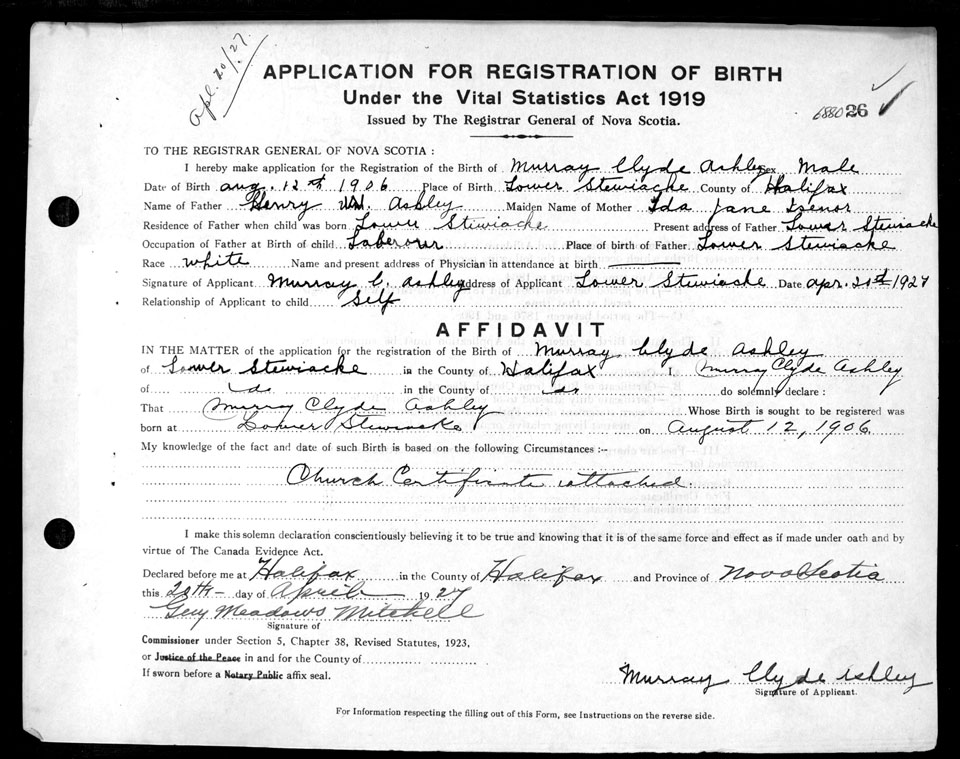 Apl. 20/27.
APPLICATION FOR REGISTRATION OF BIRTH
Under the Vital Statistics Act 1919
Issued by The Registrar General of Nova Scotia.
688026
TO THE REGISTRAR GENERAL OF NOVA SCOTIA :
I hereby make application for the Registration of the Birth of Murray Clyde Ashley Sex Male
Date of Birth Aug. 12th 1906 Place of Birth Lower Stewiacke County of Halifax
Name of Father Henry Wm. Ashley Maiden Name of Mother Ida Jane Isenor
Residence of Father when child was born Lower Stewiacke Present address of Father Lower Stewiacke
Occupation of Father at Birth of child Laberour Place of birth of Father Lower Stewiacke
Race white Name and present address of Physician in attendance at birth
Signature of Applicant Murray C. Ashley Address of Applicant Lower Stewiacke Date Apr. 20th 1927
Relationship of Applicant to child Self
AFFIDAVIT
IN THE MATTER of the application for the registration of the Birth of Murray Clyde Ashley
of Lower Stewiacke in the County of Halifax I, Murray Clyde Ashley
of do in the County of do do solemnly declare :
That Murray Clyde Ashley Whose Birth is sought to be registered was
born at Lower Stewiacke on August 12, 1906
My knowledge of the fact and date of such Birth is based on the following Circumstances :-
Church Certificate attached.
I make this solemn declaration conscientiously believing it to be true and knowing that it is of the same force and effect as if made under oath and by
virtue of The Canada Evidence Act.
Declared before me at Halifax in the County of Halifax and Province of Nova Scotia
this 20th day of April 1927
Meadows Mitchell
Signature of
Commissioner under Section 5, Chapter 38, Revised Statutes, 1923,
or Justice of the Peace in and for the County of
If sworn before a Notary Public affix seal.
Murray Clyde Ashley
Signature of Applicant.
For Information respecting the filling out of this Form, see Instructions on the reverse side.